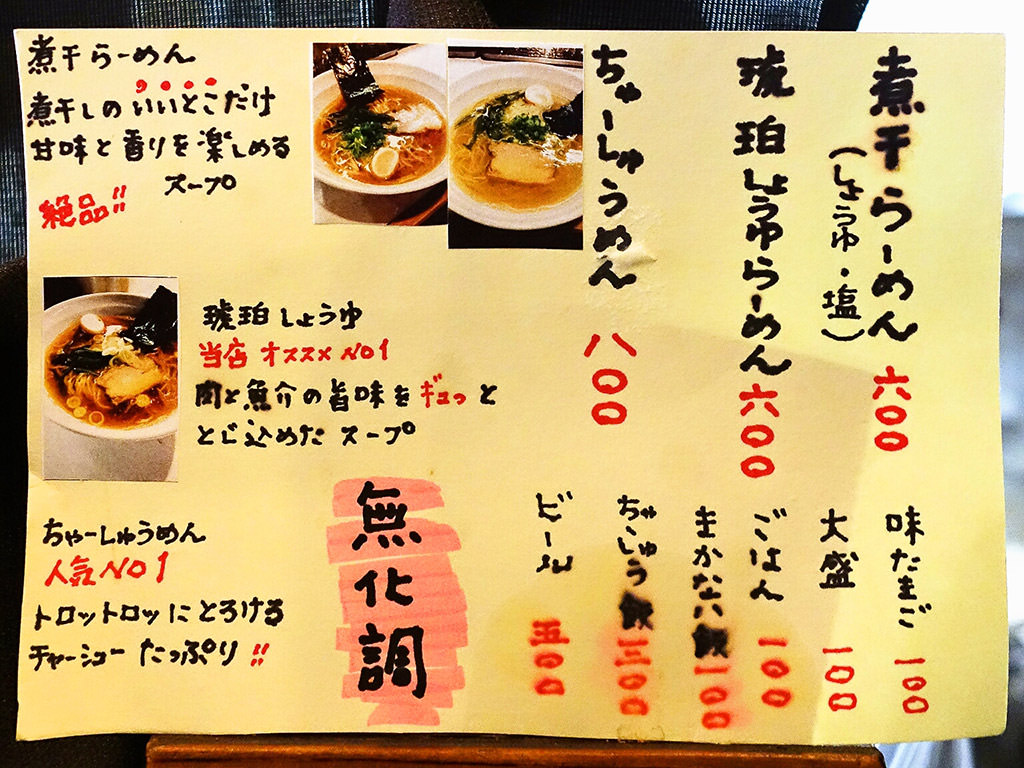 煮干らーめん
(しょうゆ・塩)
六〇〇
琥珀しょうゆらーめん
六〇〇
ちゃーしゅうめん
八〇〇
煮干らーめん
煮干しのいいとこだけ
甘味と香りを楽しめる
スープ
絶品!!
琥珀しょうゆ
当店オススメNO1
肉と魚介の旨味をギュっと
とじ込めたスープ
ちゃーしゅうめん
人気NO1
トロットロッにとろける
チャーシューたっぷり!!
無化調
味たまご
一〇〇
大盛
一〇〇
ごはん
一〇〇
まかない飯
一〇〇
ちゃーしゅう飯
三〇〇
ビール
五〇〇